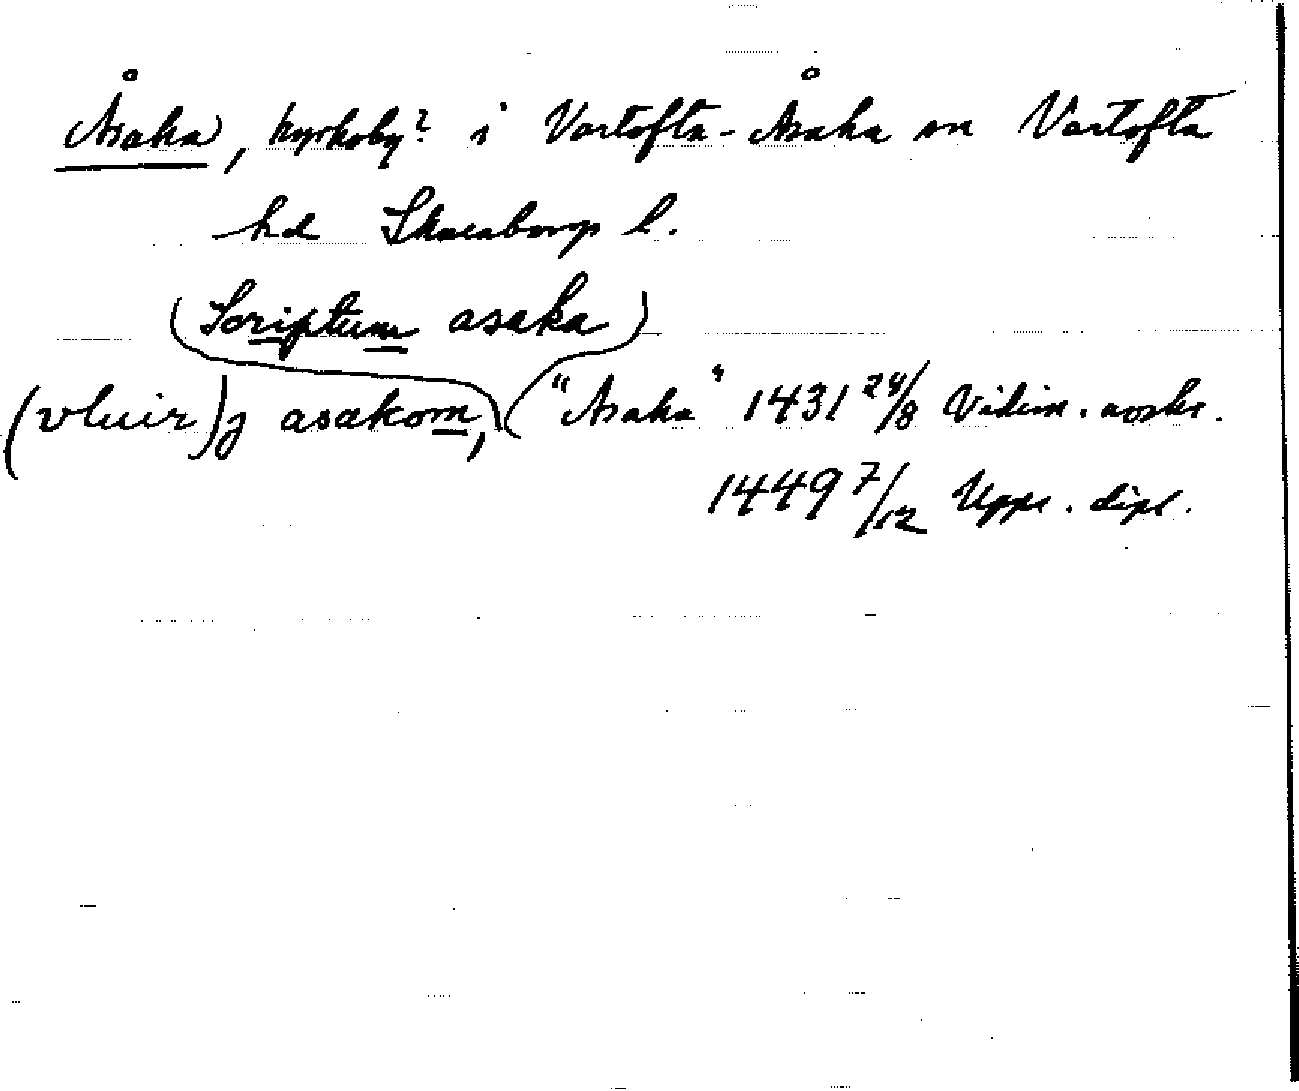 Åsaka, kyrkoby? i Vartofta-Åsaka sn Vartofta
hd Skaraborgs l.
(Scriptum asaka)
(vluir) j asakom, "Asaka" 1431 24/8 Vidim. avskr.
1449 7/12 Upps. dipl.